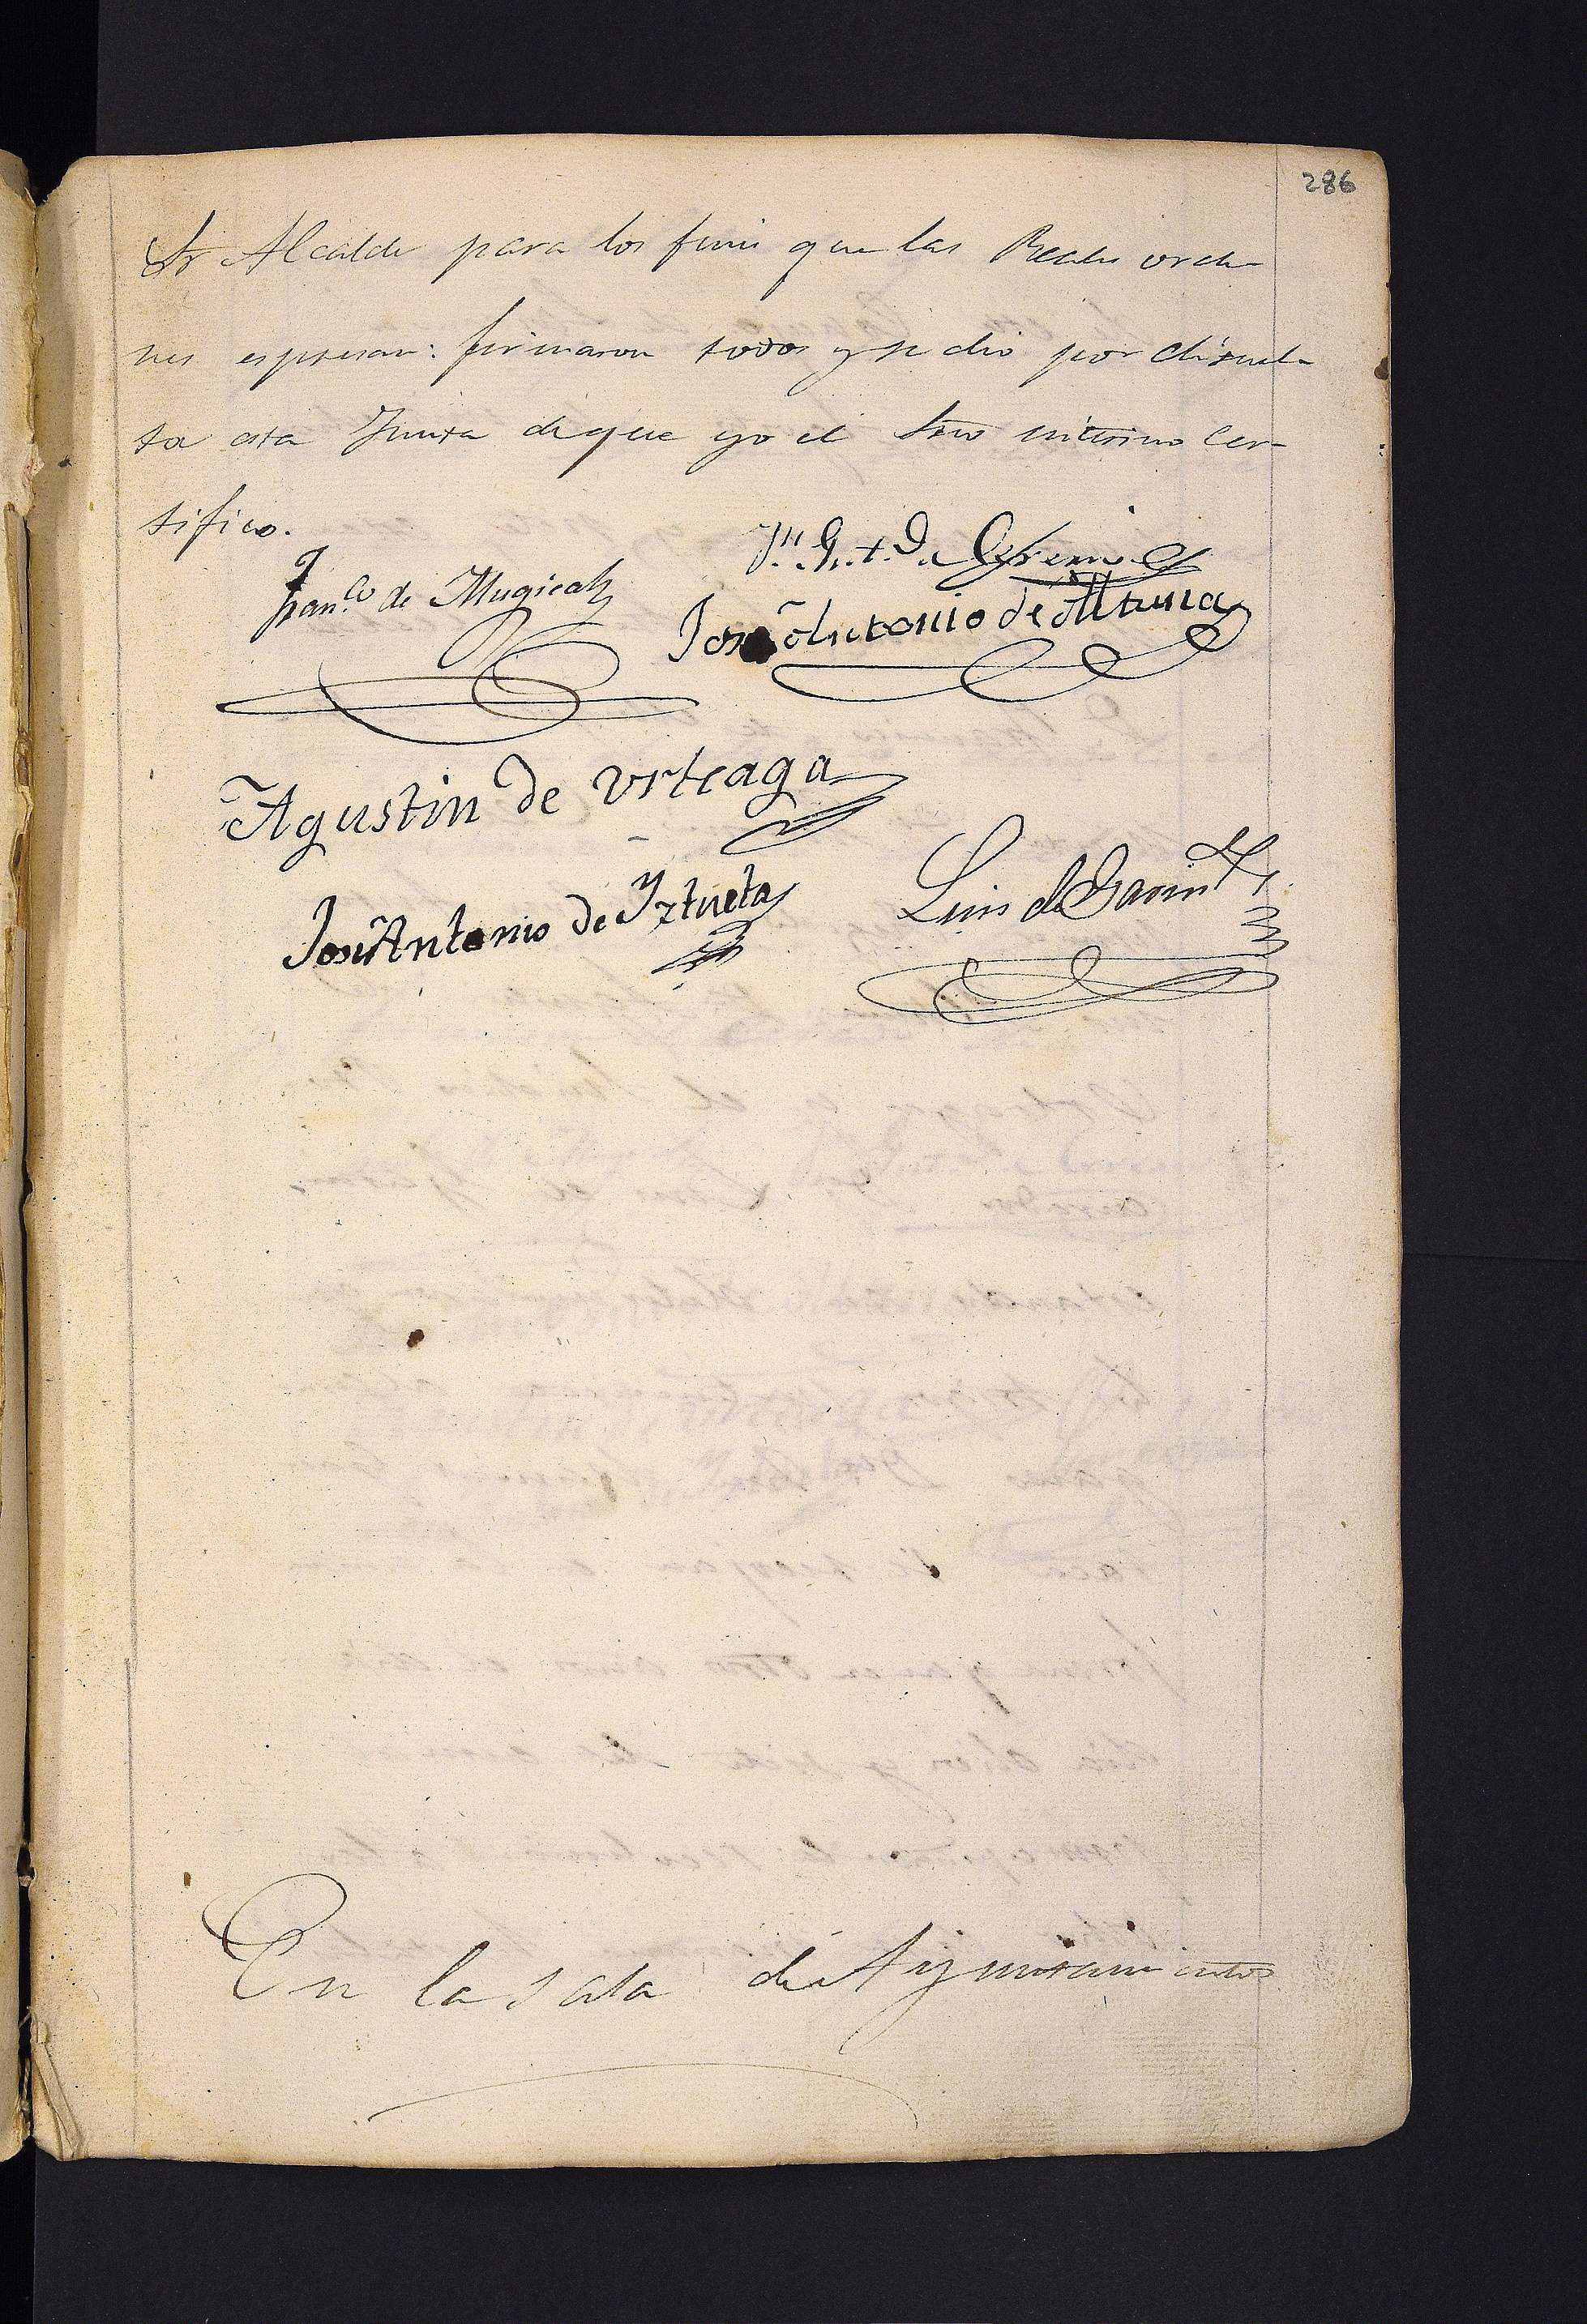 286
Sr Alcalde para los fines que las Reales orde-
nes espresan: firmaron todos y se dio por disuel-
ta esta Junta de que yo el Srio interino Cer-
tifico.
Franco. de Mugica
José Antonio de Altuna
Agustin de Urteaga
José Antonio de Yztueta
Luis de Garin
En la sala de Ayuntamientos